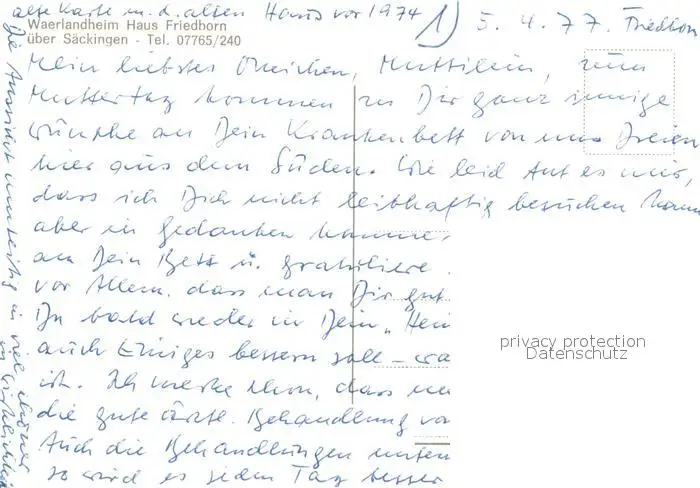 alte Karte m. d. alten Haus vor 1974 1) 5. 4. 77. Friedborn
Waerlandheim Haus Friedborn
über Säckingen - Tel. 07765/240
Mein liebstes Omichen, Muttilein, zum
Muttertag kommen zu Dir ganz innige
Wünsche an Dein Krankenbett von uns Dreien
hier aus dem Süden. Wie leid tut es mir,
dass ich Dich nicht leibhaftig besuchen kann
aber in Gedanken komme
an Dein Bett u. gratuliere
vor Allem, dass man Dir gut
Du bald wieder in Dein "Hei
auch Einiges bessern soll –
ist. Ich merke schon, dass
die gute ärztl. Behandlung
Auch die Behandlungen
so wird es jeden Tag besser
Die Aussicht
in viel schöner
privacy protection
Datenschutz